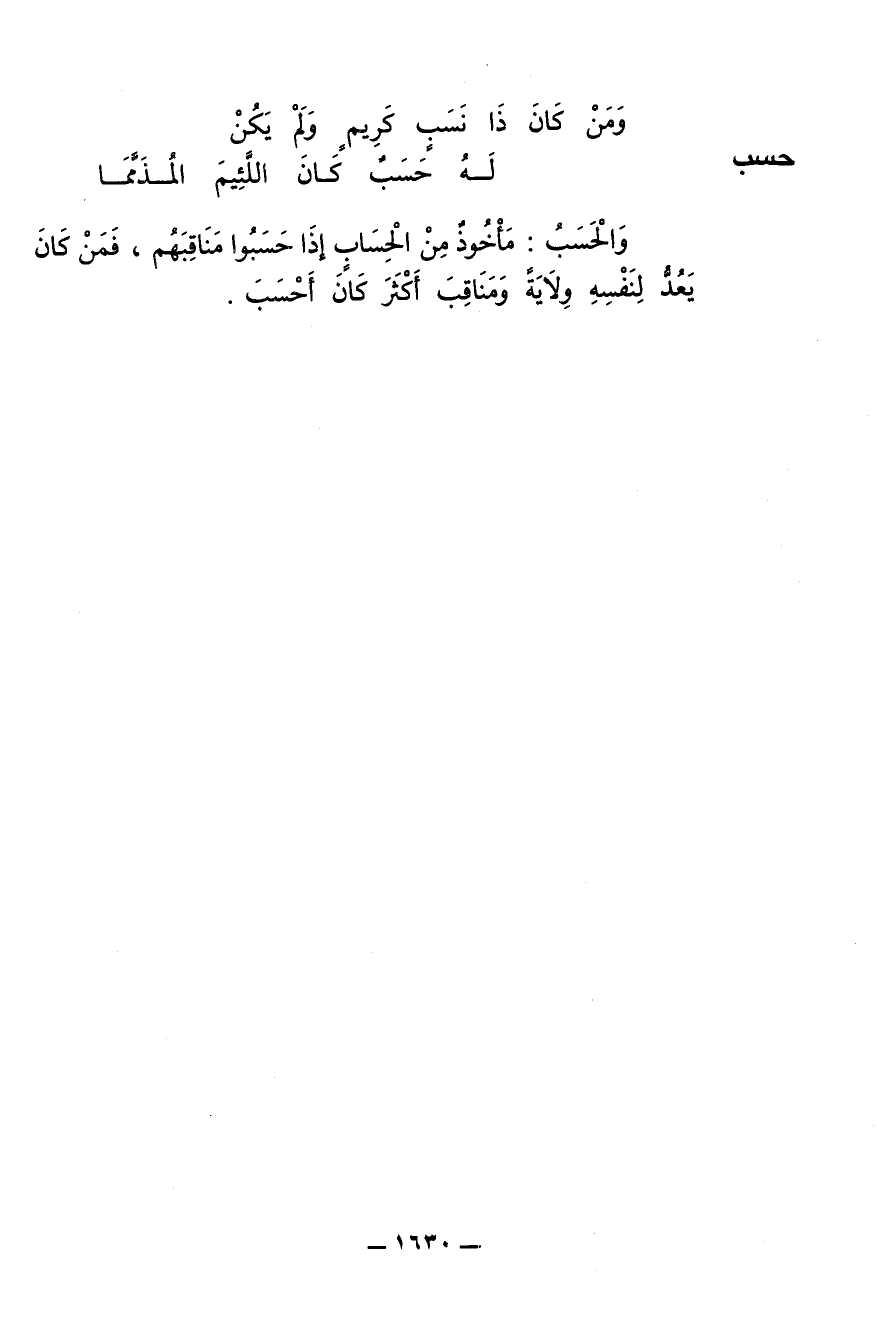 وَمَنْ كَانَ ذَا نَسَبٍ كَرِيمٍ وَلَمْ يَكُنْ
حسب
لَـهُ حَسَبٌ كَـانَ اللَّئِيمَ المُـذَمَّمَـا
وَالْحَسَبُ : مَأْخُوذٌ مِنْ الْحِسَابِ إِذَا حَسَبُوا مَنَاقِبَهُم ، فَمَنْ كَانَ
يَعُدُّ لِنَفْسِهِ وِلَايَةً وَمَنَاقِبَ أَكْثَرَ كَانَ أَحْسَبَ .
— ١٦٣٠ —